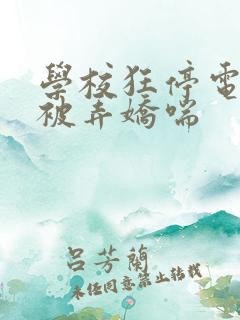 學校狂停電
被弄嬌喘
呂芳蘭
未經同意禁止轉載